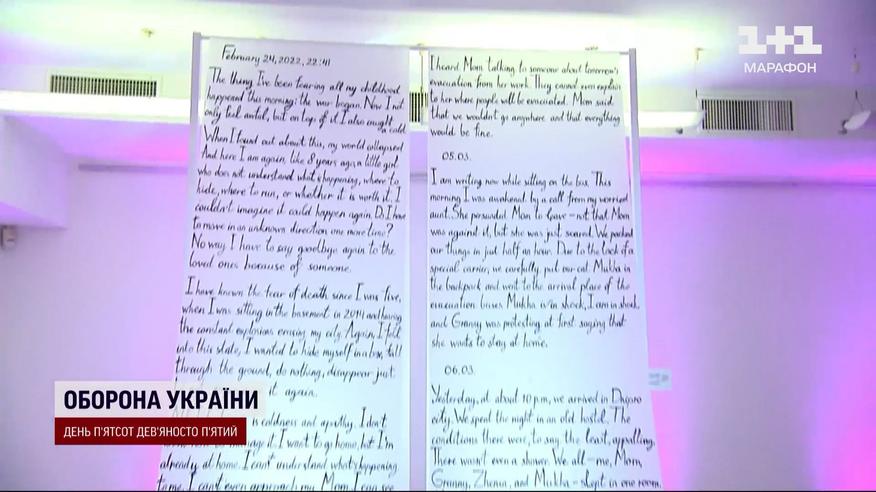 1+1
МАРАФОН
February 24, 2022, 22:41
The thing I've been fearing all my childhood
happened this morning: the war began. Now I not
only feel awful, but on top of it I also caught a cold.
When I found out about this, my world collapsed.
And here I am again, like 8 years ago, a little girl
who does not understand what's happening, where to
hide, where to run, or whether it is worth it. I
couldn't imagine it could happen again. Do I have
to move in an unknown direction one more time?
No way I have to say goodbye again to the
loved ones because of someone.
I have known the fear of death since I was five,
when I was sitting in the basement in 2014 and hearing
the constant explosions erasing my city. Again, I fell
into this state, I wanted to hide myself in a box, fall
through the ground, do nothing, disappear just
it again.
is coldness and apathy. I don't
manage it. I want to go home, but I'm
already at home. I can't understand what's happening
to me. I can't even approach my Mom. I can see
I heard Mom talking to someone about tomorrow's
evacuation from her work. They cannot even explain
to her where people will be evacuated. Mom said
that we wouldn't go anywhere and that everything
would be fine.
05.03.
I am writing now while sitting on the bus. This
morning I was awakened by a call from my worried
aunt. She persuaded Mom to leave – not that Mom
was against it, but she was just scared. We packed
our things in just half an hour. Due to the lack of a
special carrier, we carefully put our cat Mukha in
the backpack and went to the arrival place of the
evacuation buses. Mukha is in shock, I am in shock,
and Granny was protesting at first saying that
she wants to stay at home.
06.03.
Yesterday, at about 10 p.m, we arrived in Dnipro
city. We spent the night in an old hostel. The
conditions there were, to say the least, appalling.
There wasn't even a shower. We all – me, Mom,
Granny, Zhenia, and Mukha – slept in one room.
ОБОРОНА УКРАЇНИ
ДЕНЬ П'ЯТСОТ ДЕВ'ЯНОСТО П'ЯТИЙ